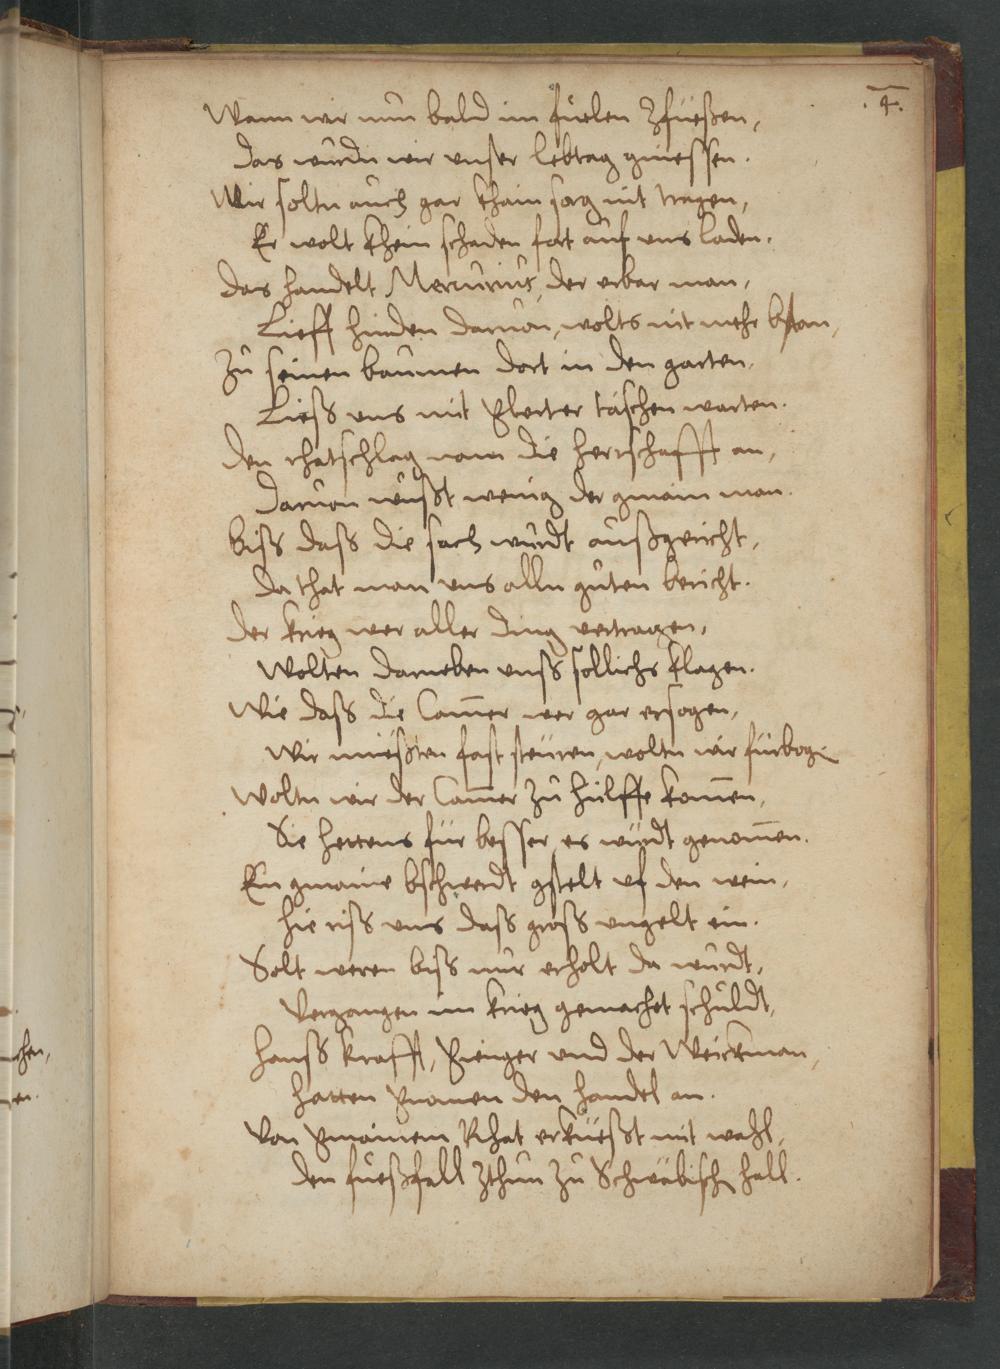 .4.
Wann wir nun bald im fielen Zfüeßen,
Das wurdn wir unser lebtag gniessen.
Wir soltn auch gar khain sorg nit tragen,
Er wolt khein schaden fort auf uns laden.
Das handelt Mercurius, der erbar man,
Lieff hinden daruon, wolts nit mehr bstan,
Zu seinen baumen dort in den garten,
Liess uns mit täschen warten.
Den rhatschlag nam die herrschafft an,
Daruon wußt wenig der gmain man.
Biss dass die sach wurdt außgricht,
Da that man uns alln guten bericht.
Der krieg wer aller ding vertragen,
Wolten darneben unss sollichs klagen.
Wie dass die Cam̄er wer gar ersogen,
Wir müeßten fast steüren, woltn wir fürbogn
Woltn wir der Cam̄er zu hülffe kom̄en,
Sie hettens für besser es würdt genom̄en.
Ein gmaine bschwerdt gstelt uf den wein,
Hie riss uns dass gross ungelt ein.
Solt weren biss nur erholt da wurdt,
Vergangen im krieg gemachet schuldt,
Hanss Krafft, und der Weickman,
Hatten gnomen den handel an.
Von gmainem Rhat erküeßt mit wahl,
Den fueßfall Zthun zu Schwäbisch Hall.
chen,
en.